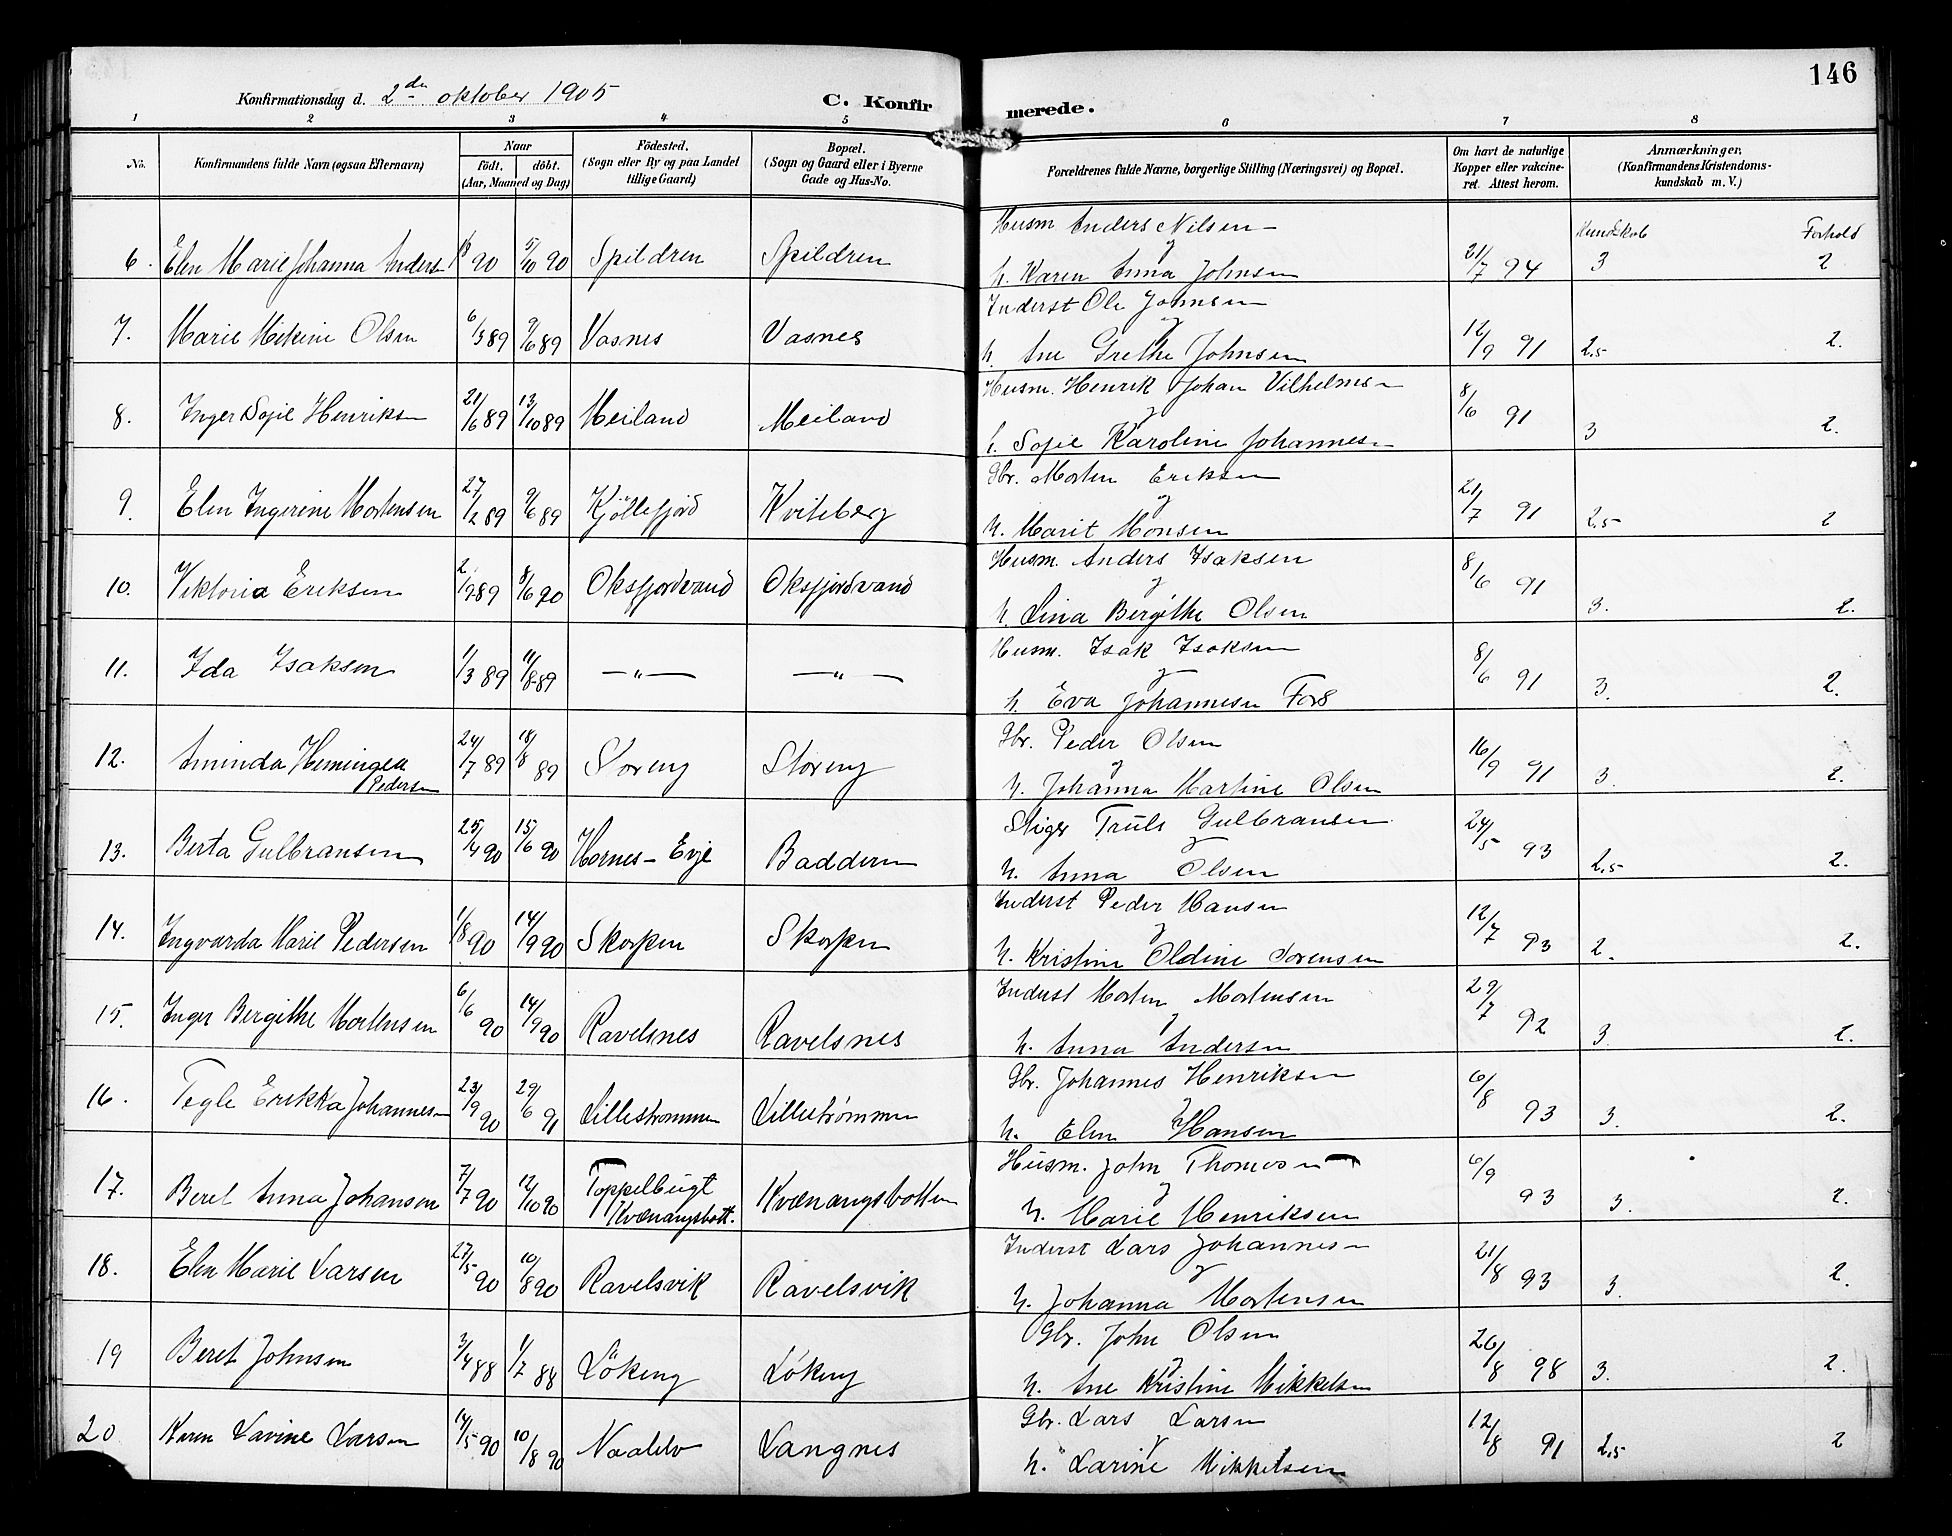 146
Konfirmationsdag d. 2den oktober 1905
C. Konfirmerede.
1 2 3 4 5 6 7 8
No. Konfirmandens fulde Navn (ogsaa Efternavn) Naar födt. döbt. (Aar, Maaned og Dag) Födested. (Sogn eller By og paa Landet tillige Gaard) Bopæl. (Sogn og Gaard eller i Byerne Gade og Hus-No. Forældrenes fulde Navne, borgerlige Stilling (Næringsvei) og Bopæl. Om havt de naturlige Kopper eller vakcineret. Attest herom. Anmærkninger. (Konfirmandens Kristendomskundskab m. V.)
Kundskab Forhold
6. Elen Marie Johanna Anders 90 5/10 90 Spildren Spildren Husm Anders Nilsen og h. Karen Anna Johnsen 21/7 94 3 2
7. Marie Mekine Olsen 6/3 89 9/6 89 Vasnes Vasnes Inderst Ole Johnsen og h. Ane Grethe Johnsen 12/9 91 2,5 2.
8. Inger Sofie Henriksen 21/6 89 13/10 89 Meiland Meiland Husm. Henrik Johan Vilhelmsen og h. Sofie Karoline Johannesen 8/6 91 3 2.
9. Elen Ingerine Mortensen 27/2 89 9/6 89 Kjöllefjord Kviteberg Gbr. Morten Eriksen og h. Marit Monsen 21/7 91 2,5 2
10. Viktoria Eriksen 2/9 89 8/6 90 Oksfjordvand Oksfjordvand Husm. Anders Isaksen og h. Lina Bergithe Olsen 8/6 91 3. 2.
11. Ida Isaksen 1/3 89 11/8 89 —"— —"— Husm. Isak Isaksen og h. Eva Johannesen Fors 8/6 91 3. 2.
12. Aminda Hemingea Pedersen 24/7 89 18/8 89 Storeng Storeng Gbr. Peder Olsen og h. Johanna Martine Olsen 16/9 91 3. 2.
13. Berta Gulbransen 25/4 90 15/6 90 Hornes - Evje Badderen Stiger Truls Gulbransen og h. Anna Olsen 24/5 93 2,5 2.
14. Ingvarda Marie Pedersen 1/8 90 14/9 90 Skorpen Skorpen Inderst Peder Hansen og h. Kristine Oldine Sorensen 12/7 93 2. 2.
15. Inger Bergithe Mortensen 6/6 90 14/9 90 Ravelsnes Ravelsnes Inderst Morten Mortensen og h. Anna Andersen 29/7 92 3. 2.
16. Tegle Erikka Johannesen 23/9 90 29/6 91 Lillestrommen Lillestrømmen Gbr. Johannes Henriksen og h. Elen Hansen 6/8 93 3. 2.
17. Beret Anna Johansen 7/7 90 12/10 90 Toppelbugt Kvænangsbott. Kvænangsbotten Husm. John Thomesen og h. Marie Henriksen 6/9 93 3. 2.
18. Elen Marie Larsen 27/5 90 10/8 90 Ravelsvik Ravelsvik Inderst Lars Johannesen og h. Johanna Mortensen 21/8 93 3. 2.
19 Beret Johnsen 3/4 88 1/7 88 Lökeng Lökeng Gbr. John Olsen og h. Ane Kristine Mikkelsen 26/8 98 3. 2.
20 Karen Lavine Larsen 14/5 90 10/8 90 Langnes Gbr. Lars Larsen og h. Larine Mikkelsen 12/8 91 2,5 2